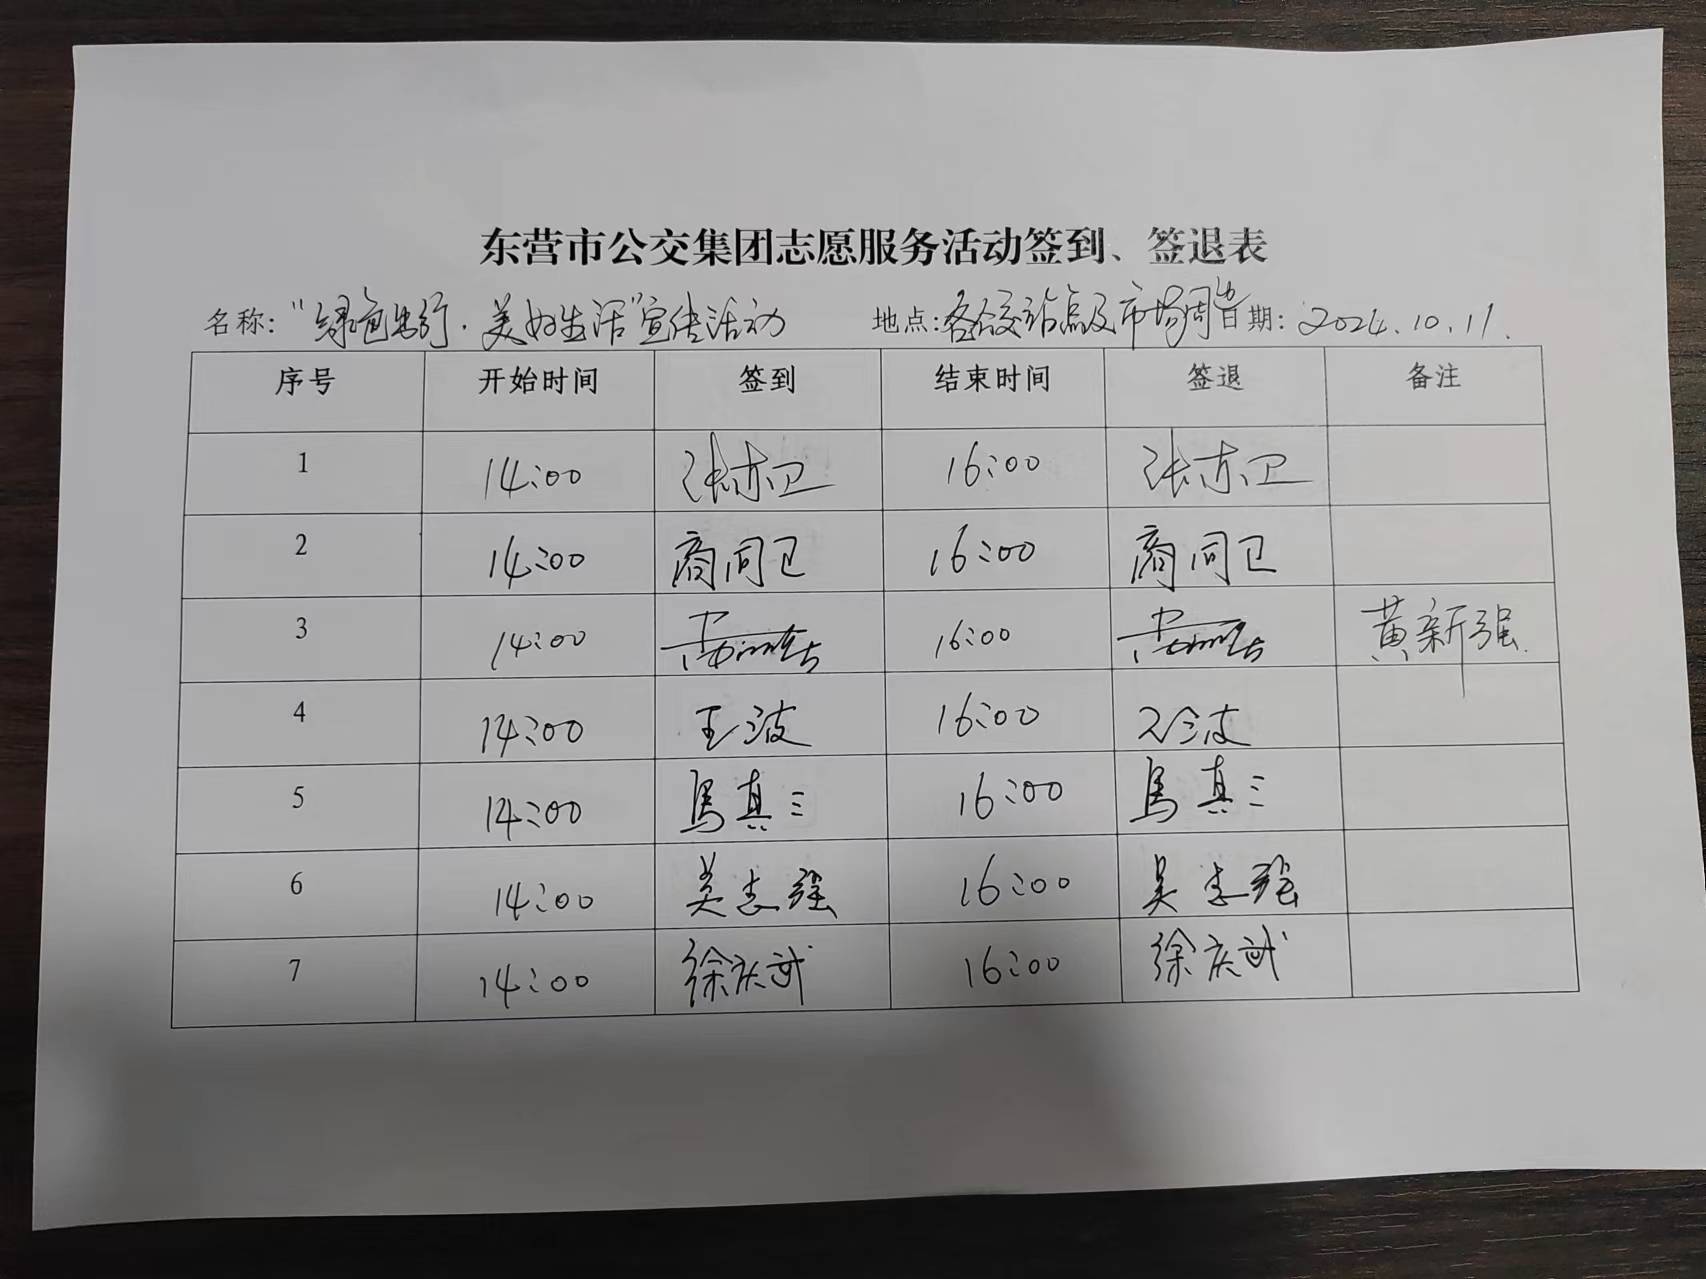 东营市公交集团志愿服务活动签到、签退表
名称：“绿色出行·美好生活”宣传活动 地点：各公交站点及市场周边 日期：2024.10.11.
序号 开始时间 签到 结束时间 签退 备注
1 14:00 张亦卫 16:00 张亦卫
2 14:00 商同卫 16:00 商同卫
3 14:00 16:00 黄新强
4 14:00 王波 16:00 王波
5 14:00 马真三 16:00 马真三
6 14:00 吴志强 16:00 吴志强
7 14:00 徐庆武 16:00 徐庆武